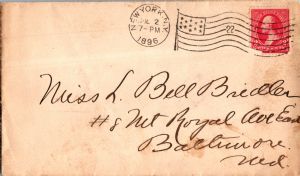 NEW YORK, N.Y.
JUL 2
7-PM
1896
Miss L. Bell Briedler
#8 Mt Royal Ave East
Baltimore
Md.